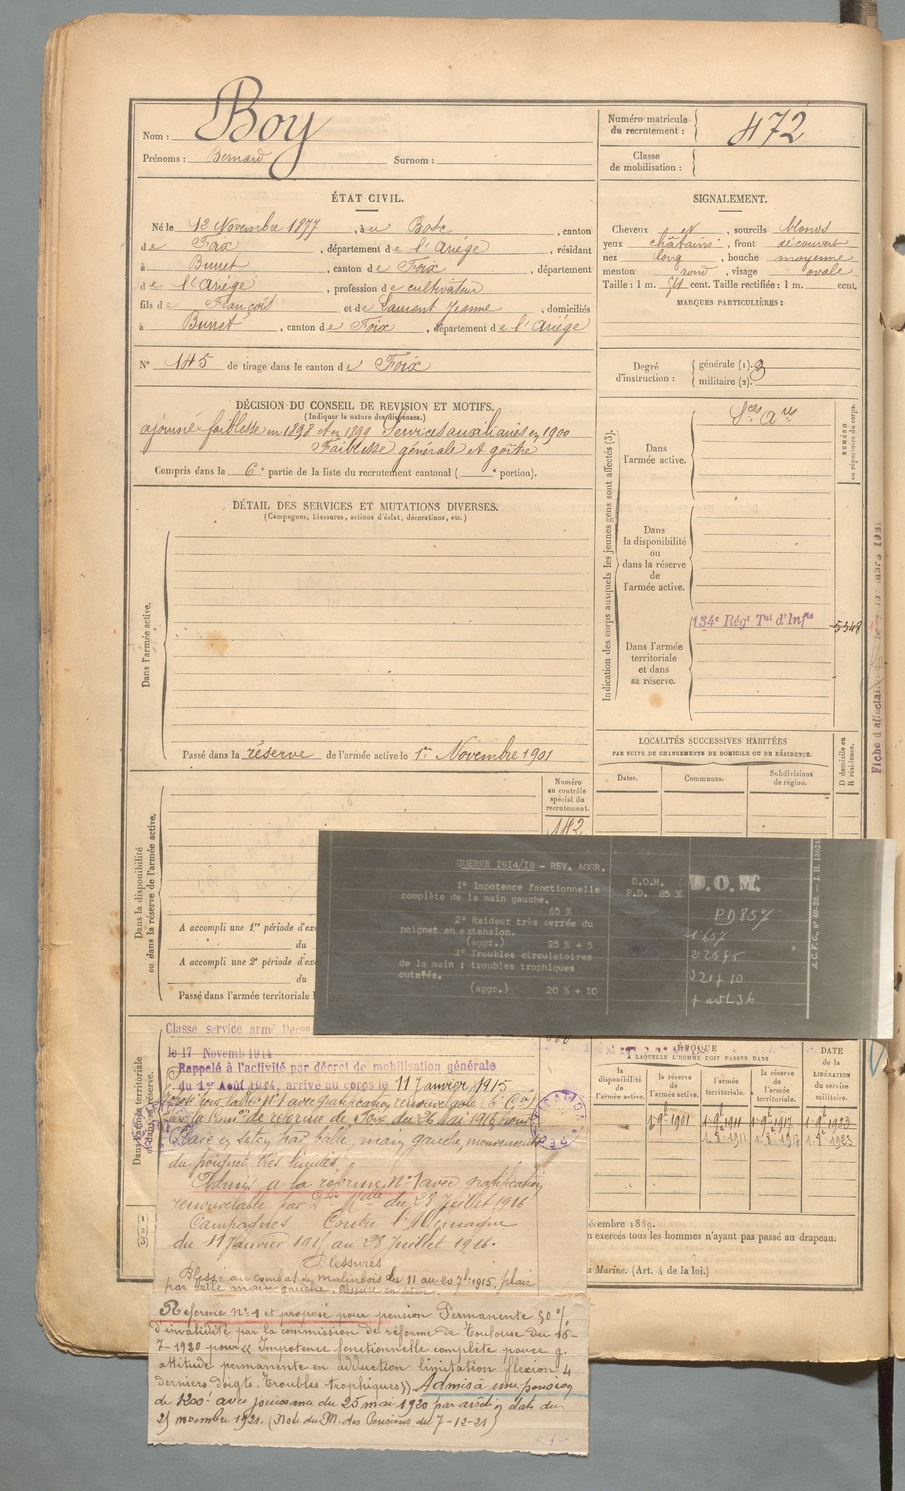 Nom : Boy
Prénoms : Bernard Surnom :
Numéro matricule du recrutement : 472
Classe de mobilisation :
ÉTAT CIVIL.
Né le 12 Novembre 1877, à u Bosc, canton
de Foix, département de l'Ariège, résidant
à Burret, canton de Foix, département
de l'Ariège, profession de cultivateur
fils de François et de Laurent Jeanne, domiciliés
à Burret, canton de Foix, département de l'Ariège
N° 145 de tirage dans le canton de Foix
SIGNALEMENT.
Cheveux et, sourcils blonds
yeux châtains, front découvert
nez long, bouche moyenne
menton rond, visage ovale
Taille : 1 m. 54 cent. Taille rectifiée : 1 m. cent.
MARQUES PARTICULIÈRES :
Degré d'instruction : générale (1). 3
militaire (2).
DÉCISION DU CONSEIL DE REVISION ET MOTIFS.
(Indiquer la nature des dispenses.)
ajourné faiblesse en 1898 et en 1899 Services auxiliaires en 1900
Faiblesse générale et goître
Compris dans la 6e partie de la liste du recrutement cantonal ( e portion).
DÉTAIL DES SERVICES ET MUTATIONS DIVERSES.
(Campagnes, blessures, actions d'éclat, décorations, etc.)
Dans l'armée active.
Passé dans la réserve de l'armée active le 1er Novembre 1901
Indication des corps auxquels les jeunes gens sont affectés (3).
NUMÉRO au répertoire du corps.
Dans l'armée active.
Sces Ares
Dans la disponibilité ou dans la réserve de l'armée active.
Dans l'armée territoriale et dans sa réserve.
134e Régt Tal d'Infie
5348
LOCALITÉS SUCCESSIVES HABITÉES
PAR SUITE DE CHANGEMENTS DE DOMICILE OU DE RÉSIDENCE.
Dates. Communes. Subdivisions de région.
D domicile ou R résidence.
Dans la disponibilité ou dans la réserve de l'armée active.
Numéro au contrôle spécial du recrutement.
182
A accompli une 1re période d'ex
du
A accompli une 2e période d'ex
du
Passé dans l'armée territoriale l
GUERRE 1914/18 - REV. AGGR.
1° Impotence fonctionnelle
complète de la main gauche.
65 %
2° Raideur très serrée du
poignet en extension.
(aggr.) 25 % + 5
3° Troubles circulatoires
de la main ; troubles trophiques
cutanés.
(aggr.) 20 % + 10
D.O.M.
P.D. 85 %
D.O.M.
PD 85 %
1 65 %
2 25 + 5
3 20 + 10
+ art L 36
Dans l'armée territoriale et dans sa réserve.
Classe service armé Décem
le 17 Novemb 1914
Rappelé à l'activité par décret de mobilisation générale
du 1er Août 1914, arrivé au corps le 11 Janvier 1915
Plaie en séton par balle, main gauche, mouvements
du poignet très limités
Admis à la réforme N° 1 avec gratification
renouvelable par Don Mlle du 28 Juillet 1916
Campagnes Contre l'Allemagne
du 11 Janvier 1915 au 28 Juillet 1916.
Blessures
Blessé au combat de Malinbois du 11 au 20 7bre 1915, plaie
par balle main gauche.
Réformé N° 1 et proposé pour pension Permanente 50 %
d'invalidité par la commission de réforme de Toulouse du 16-
7-1920 pour « Impotence fonctionnelle complète pouce g.
attitude permanente en adduction limitation flexion 4
derniers doigts. Troubles trophiques » Admis à une pension
de 1200f avec jouissance du 25 mai 1920 par arrêté en date du
25 novembre 1921. (Note du M. des Pensions du 7-12-21)
ÉPOQUE
À LAQUELLE L'HOMME DOIT PASSER DANS
la disponibilité de l'armée active.
la réserve de l'armée active.
l'armée territoriale.
la réserve de l'armée territoriale.
DATE de la LIBÉRATION du service militaire.
1.9bre 1901 1.9bre 1911 1.9bre 1917 1.9bre 1923
écembre 1889.
n exercés tous les hommes n'ayant pas passé au drapeau.
a Marine. (Art. 4 de la loi.)